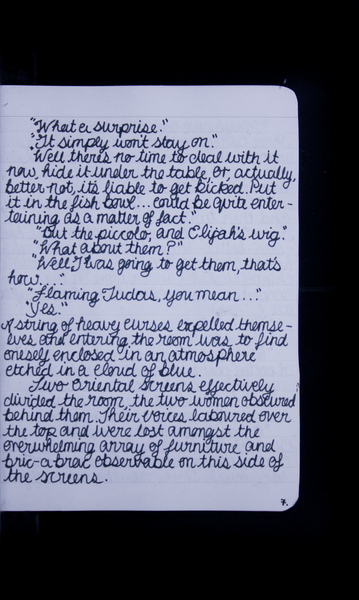 "What a surprise."
"It simply won't stay on."
"Well there's no time to deal with it
now, hide it under the table, or, actually,
better not, its liable to get kicked. Put
it in the fish bowl... could be quite enter-
taining as a matter of fact."
"But the piccolo, and Elijah's wig."
"What about them?"
"Well I was going to get them, that's
how...."
"Flaming Judas, you mean..."
"Yes."
A string of heavy curses expelled themse-
lves and entering the room was to find
oneself enclosed in an atmosphere
etched in a cloud of blue.
Two oriental screens effectively
divided the room, the two women obscured
behind them. Their voices laboured over
the top and were lost amongst the
overwhelming array of furniture and
bric-a-brac observable on this side of
the screens.
7.